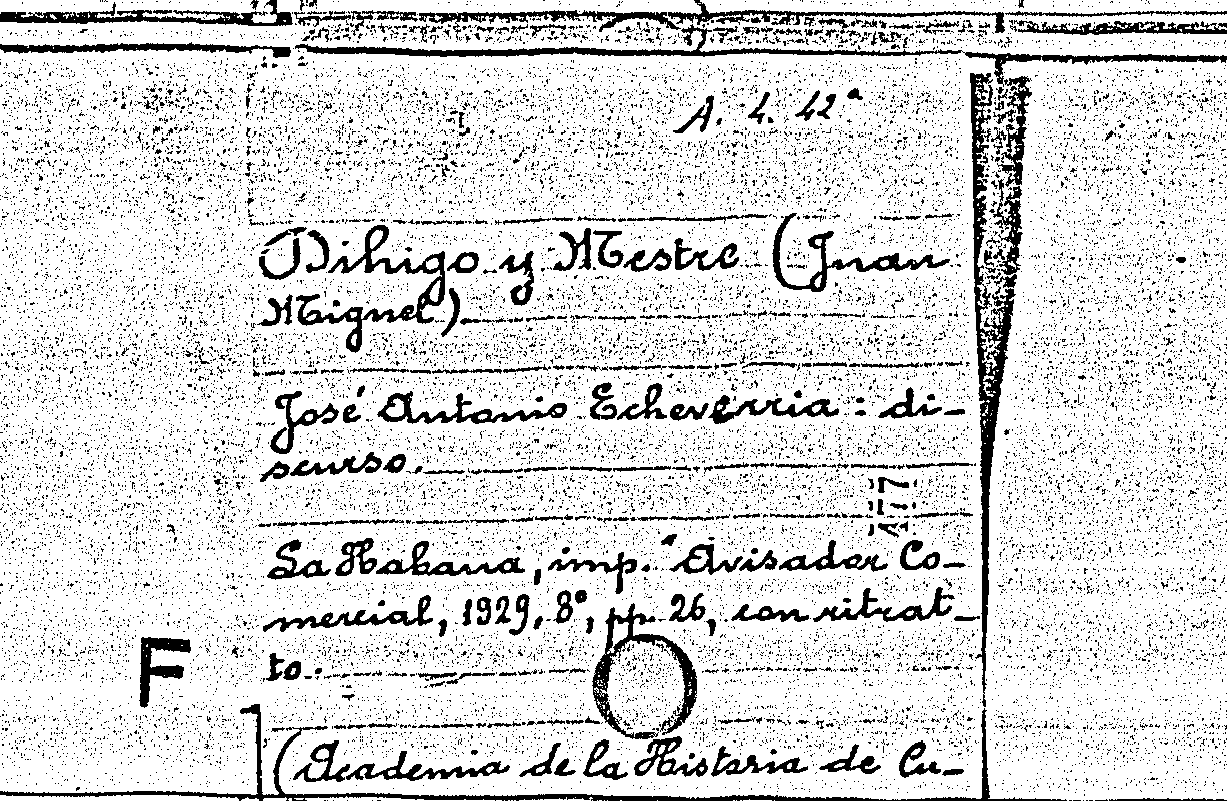 A. 4. 42ª
Dihigo y Mestre (Juan
Miguel)
José Antonio Echeverria : di-
scurso.
A77
La Habana, imp. "Avisador Co-
mercial, 1929, 8°, pp. 26, con ritrat-
to.
F
(Academia de la Historia de Cu-